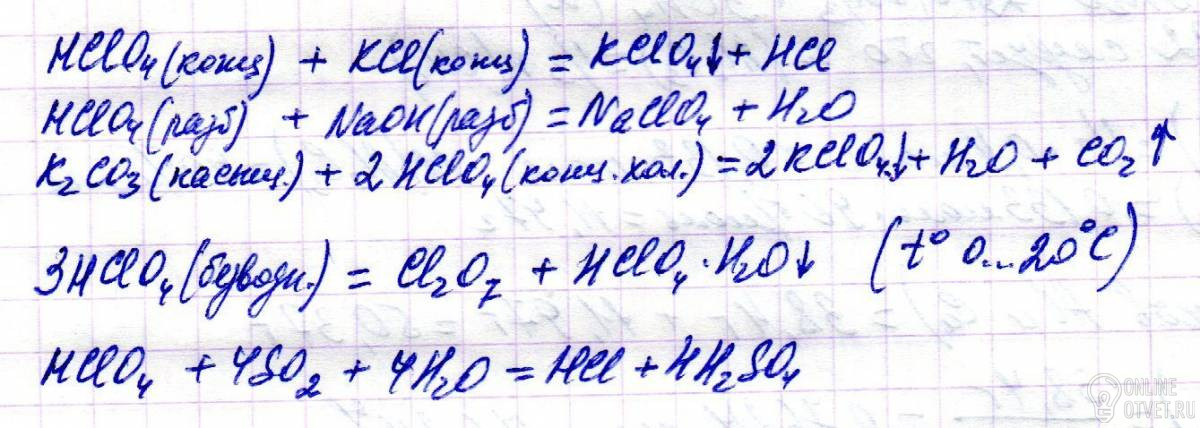 HClO₄(конц) + KCl(конц) = KClO₄↓ + HCl
HClO₄(разб) + NaOH(разб) = NaClO₄ + H₂O
K₂CO₃(насыщ.) + 2HClO₄(конц. хол.) = 2KClO₄↓ + H₂O + CO₂↑
3HClO₄(безводн.) = Cl₂O₇ + HClO₄·H₂O↓ (t° 0...20°C)
HClO₄ + 4SO₂ + 4H₂O = HCl + 4H₂SO₄
ONLINE
OTVET.RU